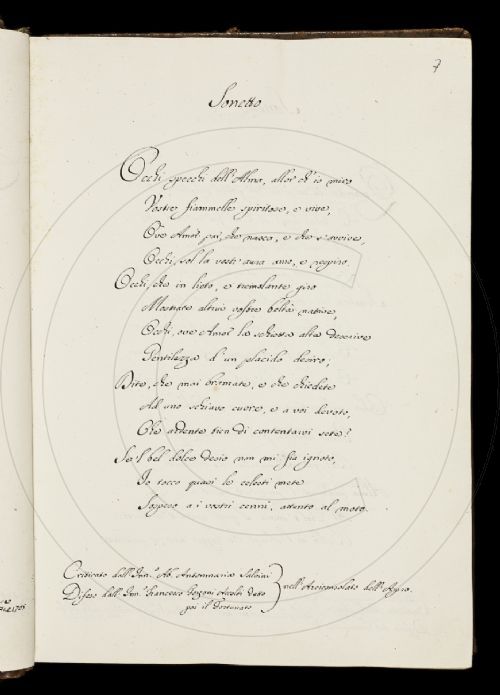 7
Sonetto
Occhi specchi dell'Alma, allor ch'io miro
Vostre fiammelle spiritose, e vive,
Ove Amor par, che nasca, e che s'avvive,
Occhi, sol la vostr'aura amo, e respiro.
Occhi, che in lieto, e tremolante giro
Mostrate altrui vostre beltà native,
Occhi, ove Amor la schietta alta descrive
Gentilezza d'un placido desiro;
Dite, che mai bramate, e che chiedete
Ad uno schiavo cuore, e a voi devoto,
Che ardente bien di contentarvi sete?
Se 'l bel dolce desio non mi fia ignoto,
Io tocco quasi le celesti mete
Sospeso a i vostri cenni, attento al moto.
Criticato dall'Inn.º Ab. Antommaria Salvini
Difeso dall'Inn.º Francesco Forzoni Accolti detto
poi il Fortunato
nell'Arciconsolato dell'Agiro.